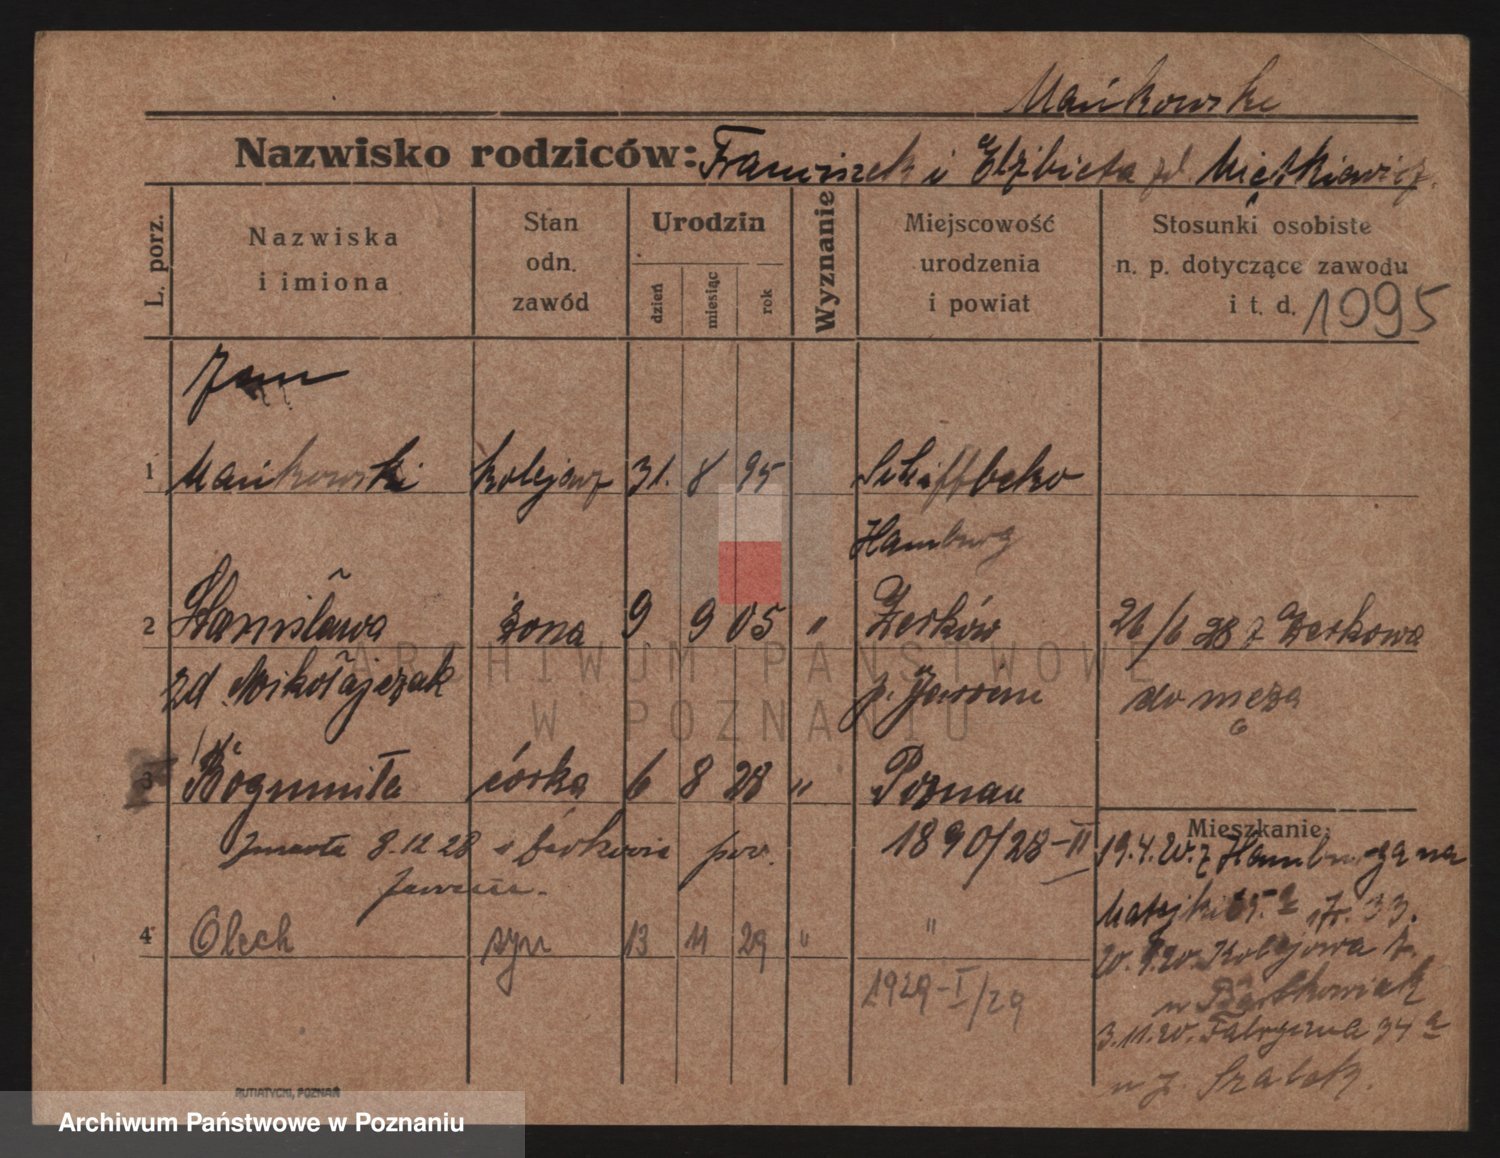 Mańkowski
Nazwisko rodziców: Franciszek i Elżbieta zd. Miętkiewicz.
L. porz.
Nazwiska
i imiona
Stan
odn.
zawód
Urodzin
dzień
miesiąc
rok
Wyznanie
Miejscowość
urodzenia
i powiat
Stosunki osobiste
n. p. dotyczące zawodu
i t. d. 1995
Jan
1 Mańkowski kolejarz 31. 8 95 Schiffbeko
Hamburg
2 Stanisława żona 9 9 05 " Żerków 26/6 28 z Żerkowa
zd. Mikołajczak p. Jarocin do męża
3 Bogumiła córka 6 8 28 " Poznań
Zmarła 8.12 28 w pow. 1890/28-II
Mieszkanie:
19.4.20. z Hamburga na
Matejki 65.a 33.
4 Olech syn 13 11 29 " "
20. 9.20. Kolejowa
1929-I/29
u Bartkowiak
3.11.20. Fabryczna 34 a
u J. Szałek.
RUTIATYCKI, POZNAŃ
ARCHIWUM PAŃSTWOWE
W POZNANIU
Archiwum Państwowe w Poznaniu